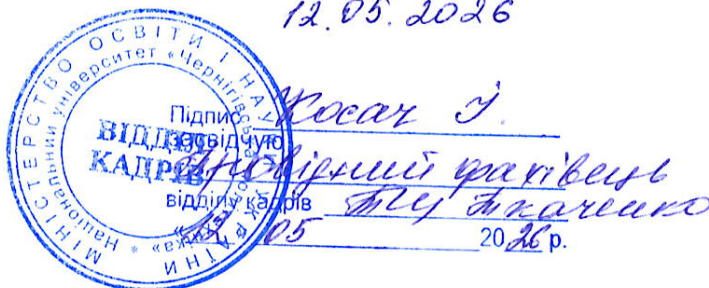 12.05.2026
МІНІСТЕРСТВО ОСВІТИ І НАУКИ УКРАЇНИ
Національний університет «Чернігівська
ВІДДІЛ
КАДРІВ
Підпис Косач І.
засвідчую
Провідний фахівець
відділу кадрів Ткаченко
12 05 2026 р.